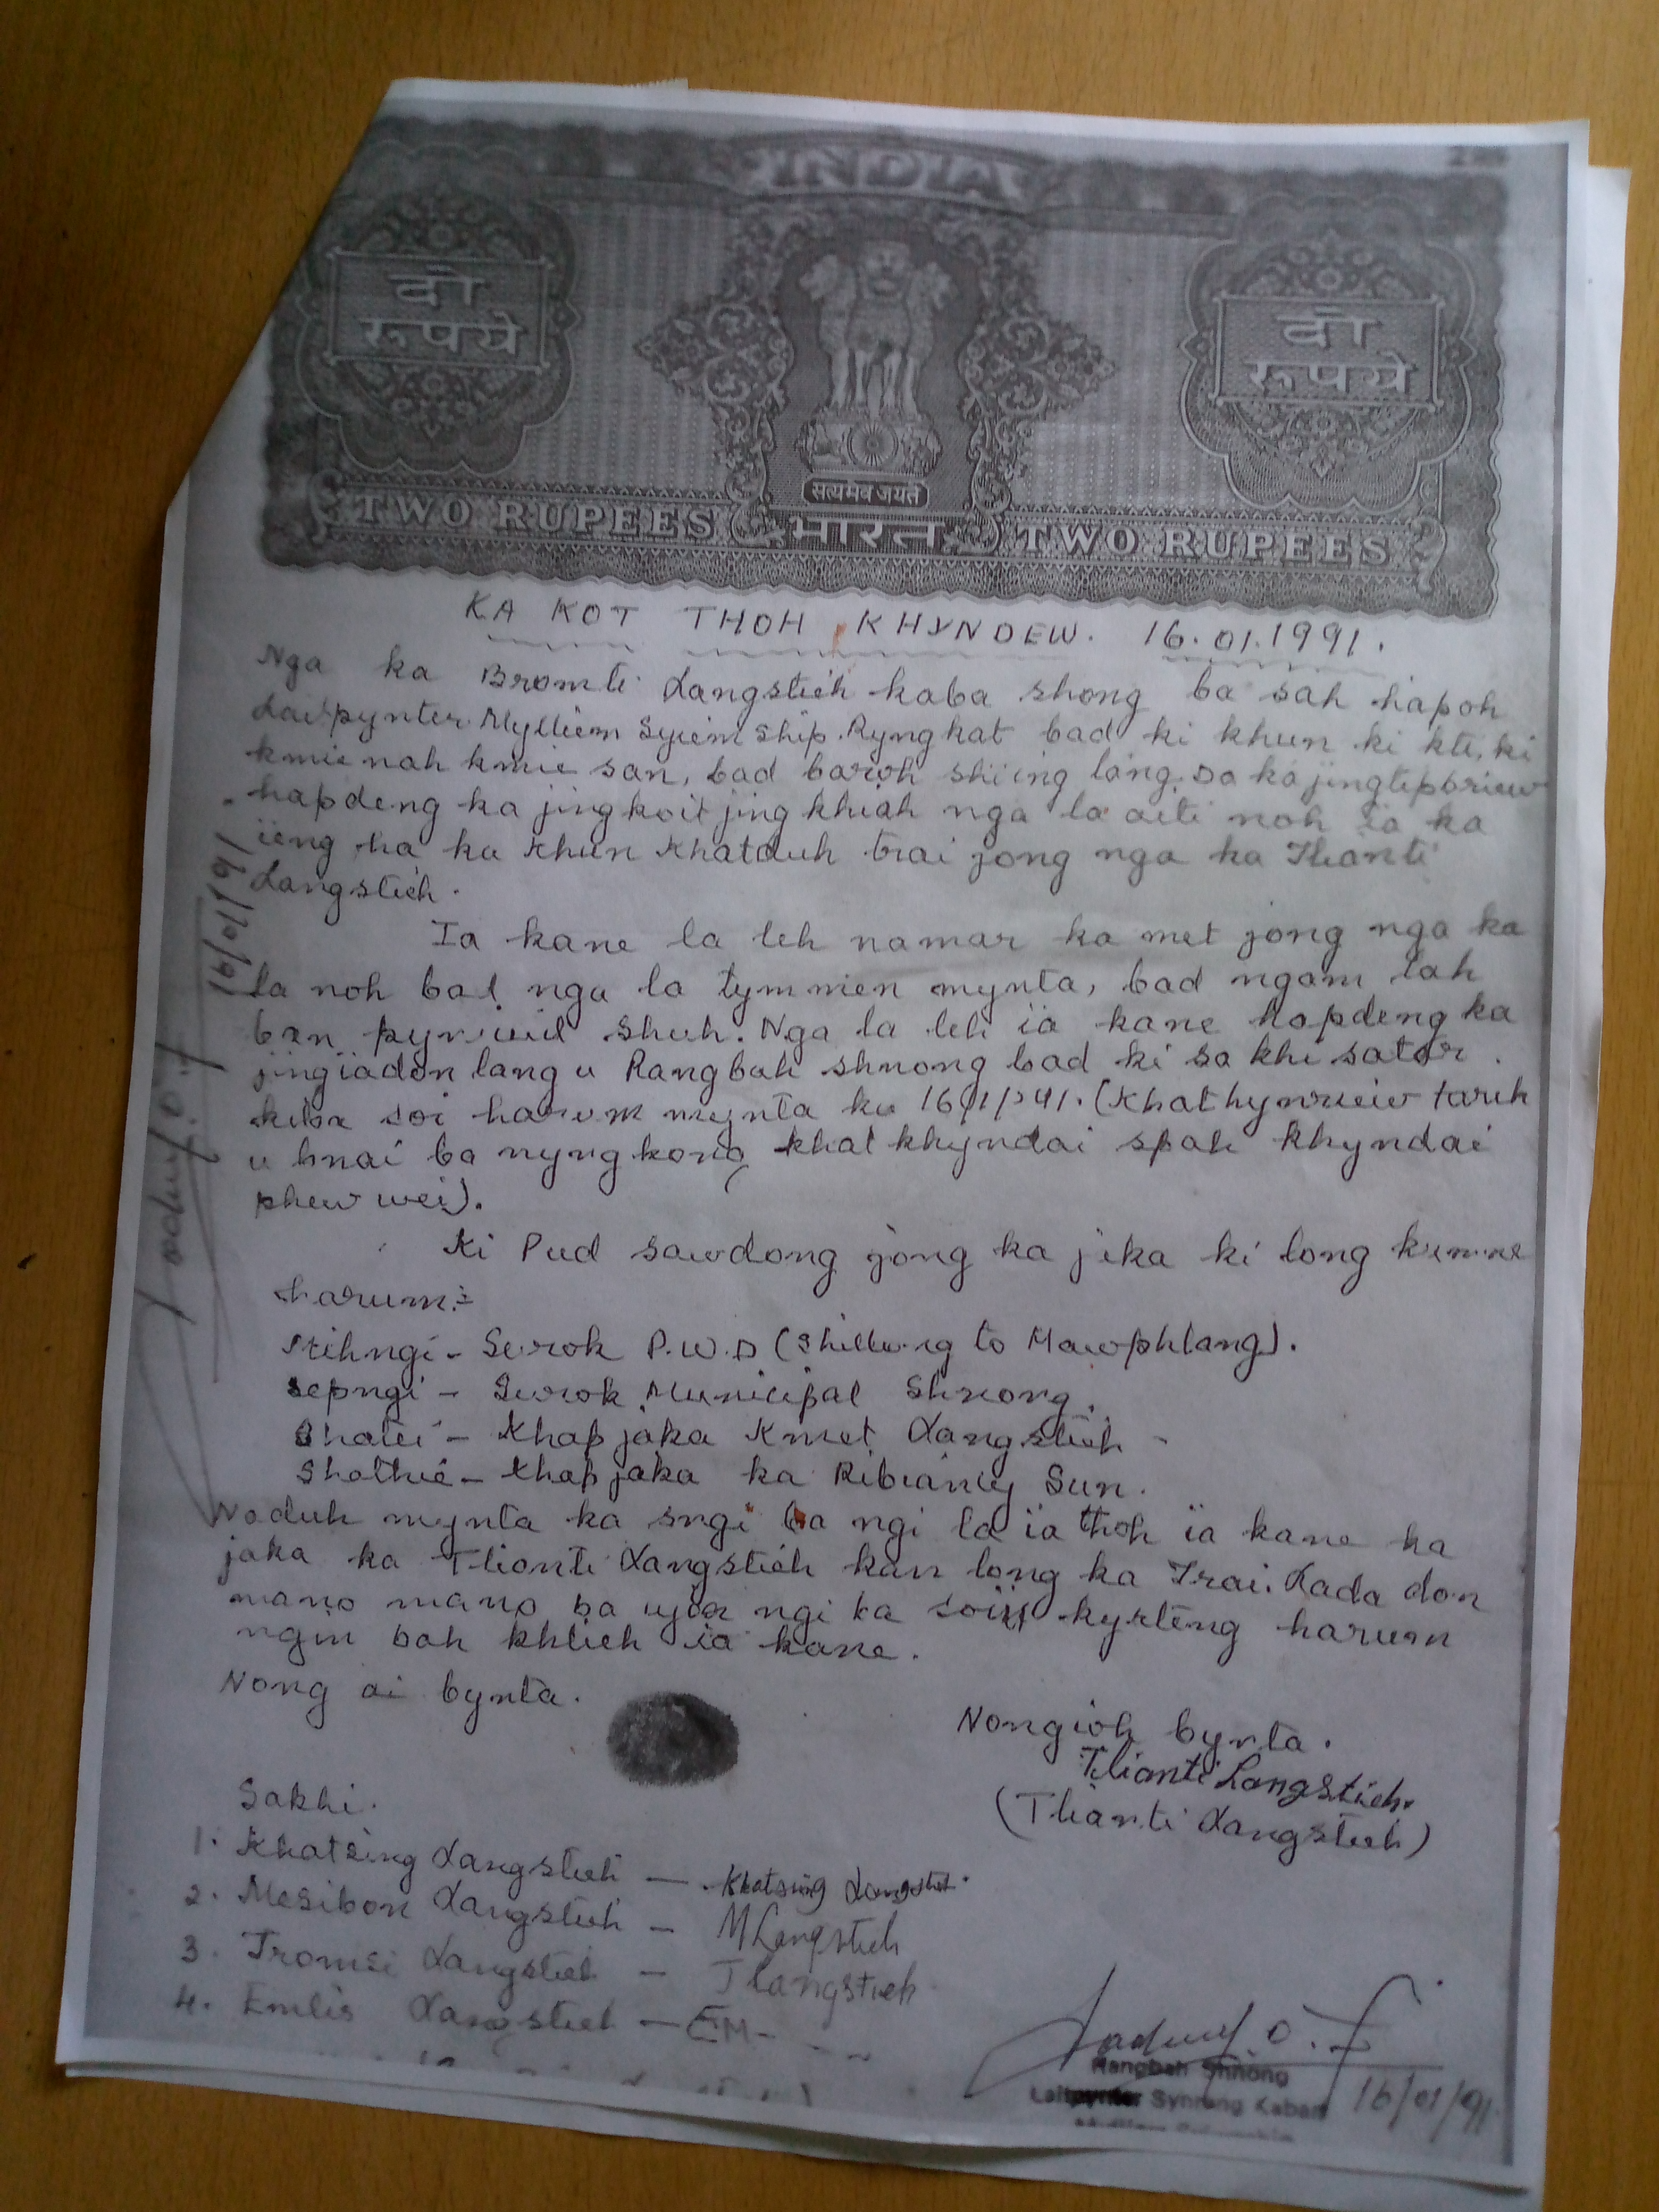 INDIA
दो
रूपये
दो
रूपये
सत्यमेव जयते
TWO RUPEES भारत TWO RUPEES
KA KOT THOH KHYNDEW. 16.01.1991.
Nga ka Bromti Langstieh kaba shong ba sah hapoh
Laitpynter Mylliem Syiem ship. Ryngkat bad ki khun ki kti, ki
kmie nah kmie san, bad baroh shi iing lang. Da ka jingtipbriew
hapdeng ka jingkoit jingkhiah nga la aiti noh ia ka
ieng ha ka khun khatduh trai jong nga ka Tlianti
Langstieh.
Ia kane la leh namar ka met jong nga ka
la noh bad nga la tymmen mynta, bad ngam lah
ban pynruid shuh. Nga la leh ia kane hapdeng ka
jingiadon lang u Rangbah shnong bad ki sakhi sator
kiba soi harum mynta ka (Khathynriew tarik
u bnai ba nyngkong khat khyndai spah khyndai
phew wei).
Ki Pud sawdong jong ka jaka ki long kumne
harum:-
Mihngi - Surok P.W.D (Shillong to Mawphlang).
Sepngi - Surok Municipal Shnong.
Shatei - Khap jaka Kmet Langstieh -
Shathie - Khap jaka ka Ribiancy Sun.
Naduh mynta ka sngi ba ngi la ia thoh ia kane ka
jaka ka Tlianti Langstieh kan long ka Trai. Lada don
mano mano ba ujor ngi ba soi kyrteng harum
ngin bah khlieh ia kane.
Nong ai bynta.
Nongioh bynta.
Tlianti Langstieh.
(Tlianti Langstieh)
Sakhi.
1. Khatsing Langstieh — Khatsing Langstieh.
2. Mesibon Langstieh - M Langstieh
3. Tromsi Langstieh - T Langstieh
4. Emlis Langstieh - EM-
Rangbah Shnong
Laitpynter Synrang Kaban
16/01/91
16/01/91